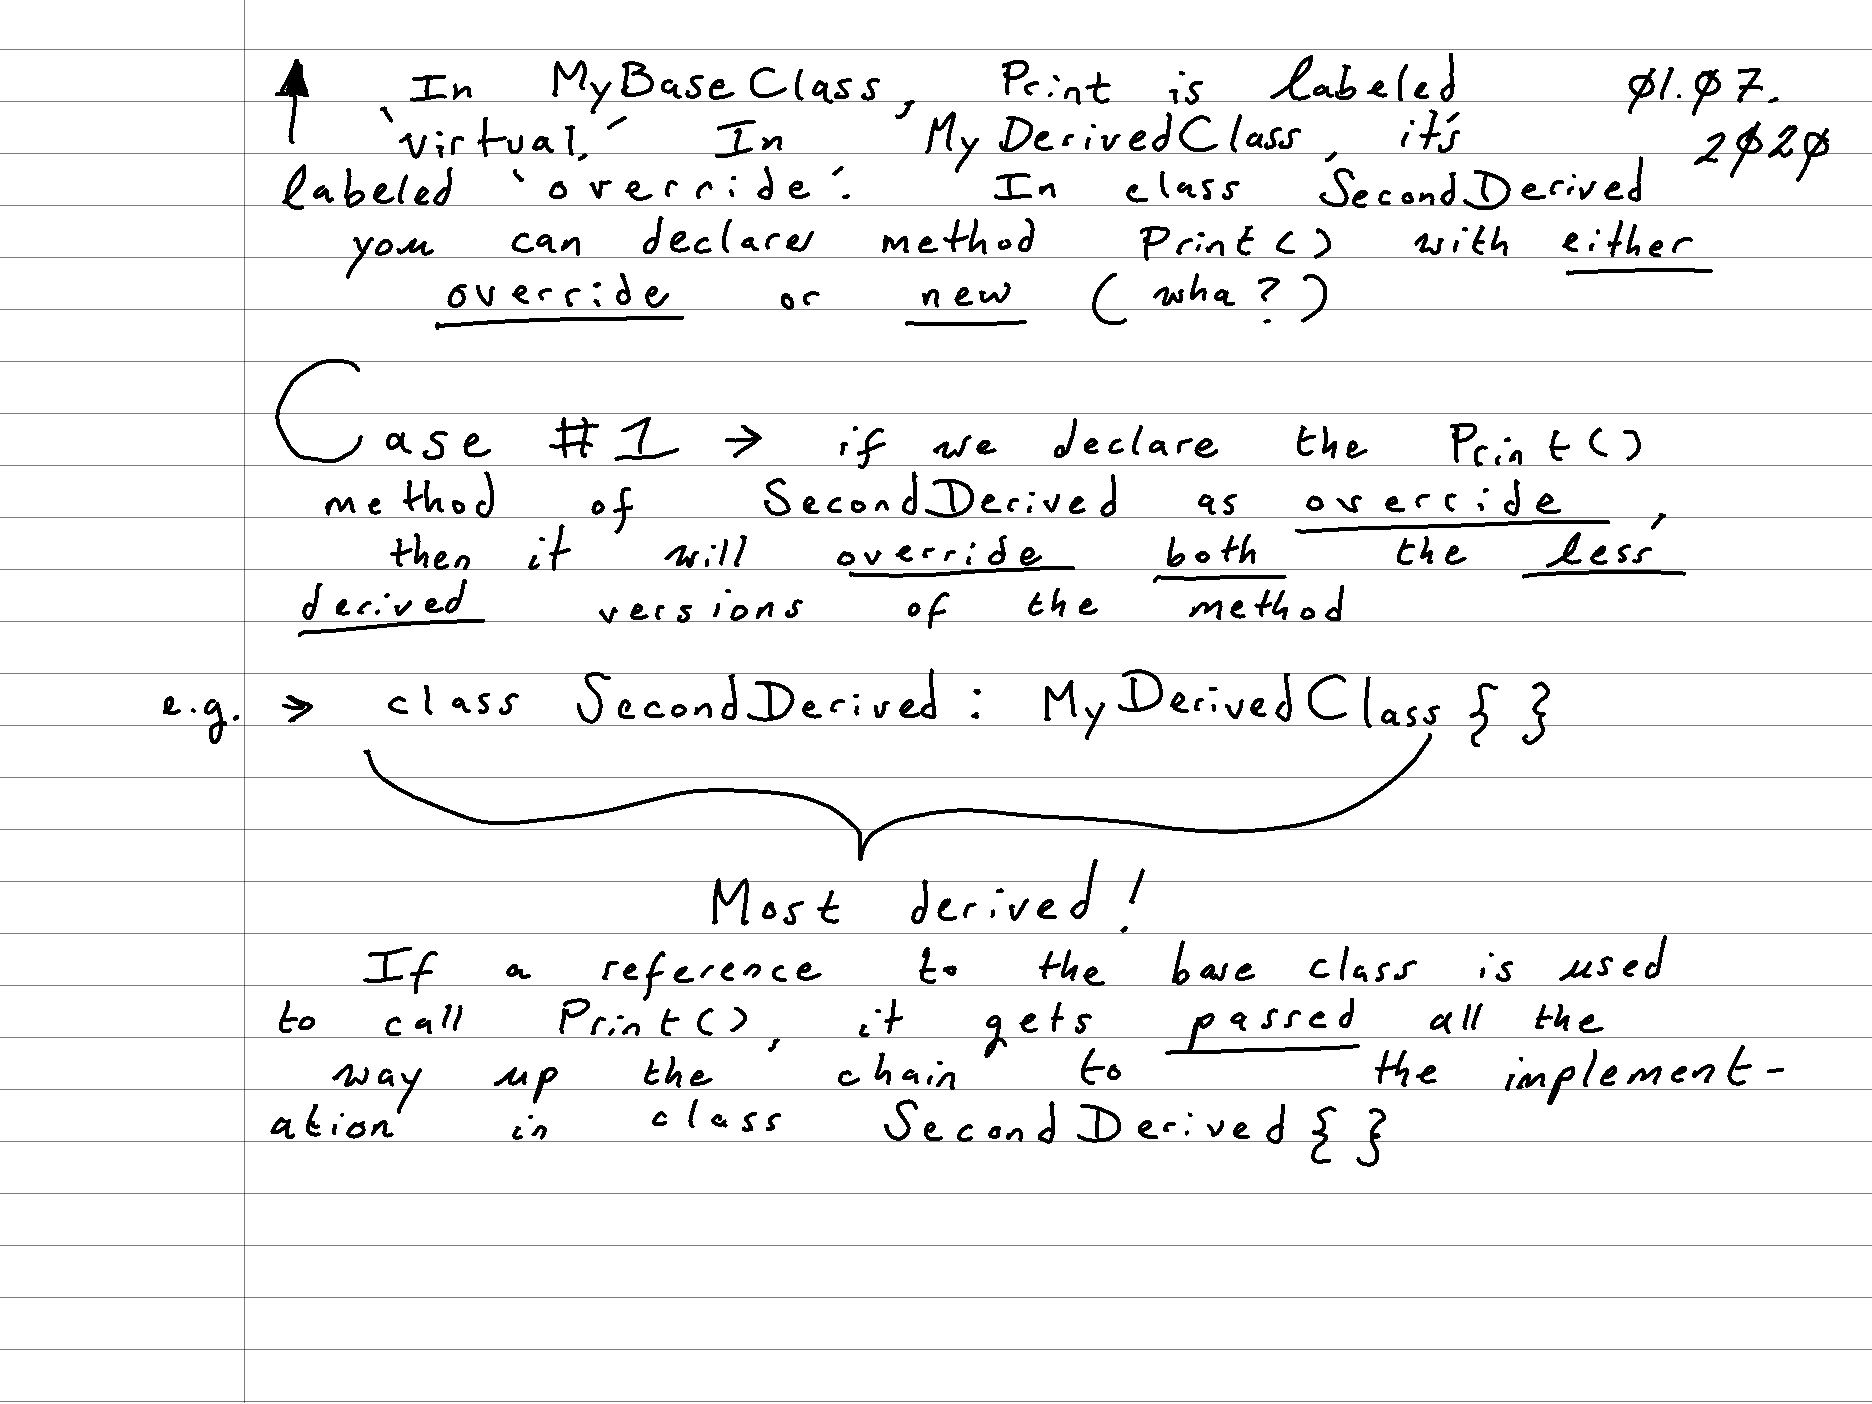 In MyBaseClass, Print is labeled Ø1.Ø7.
`virtual.´ In MyDerivedClass, it's 2Ø2Ø
labeled `override´. In class SecondDerived
you can declare method Print() with either
override or new (wha?)
Case #1 → if we declare the Print()
method of SecondDerived as override,
then it will override both the less
derived versions of the method
e.g. → class SecondDerived : MyDerivedClass { }
Most derived!
If a reference to the base class is used
to call Print(), it gets passed all the
way up the chain to the implement-
ation in class SecondDerived { }